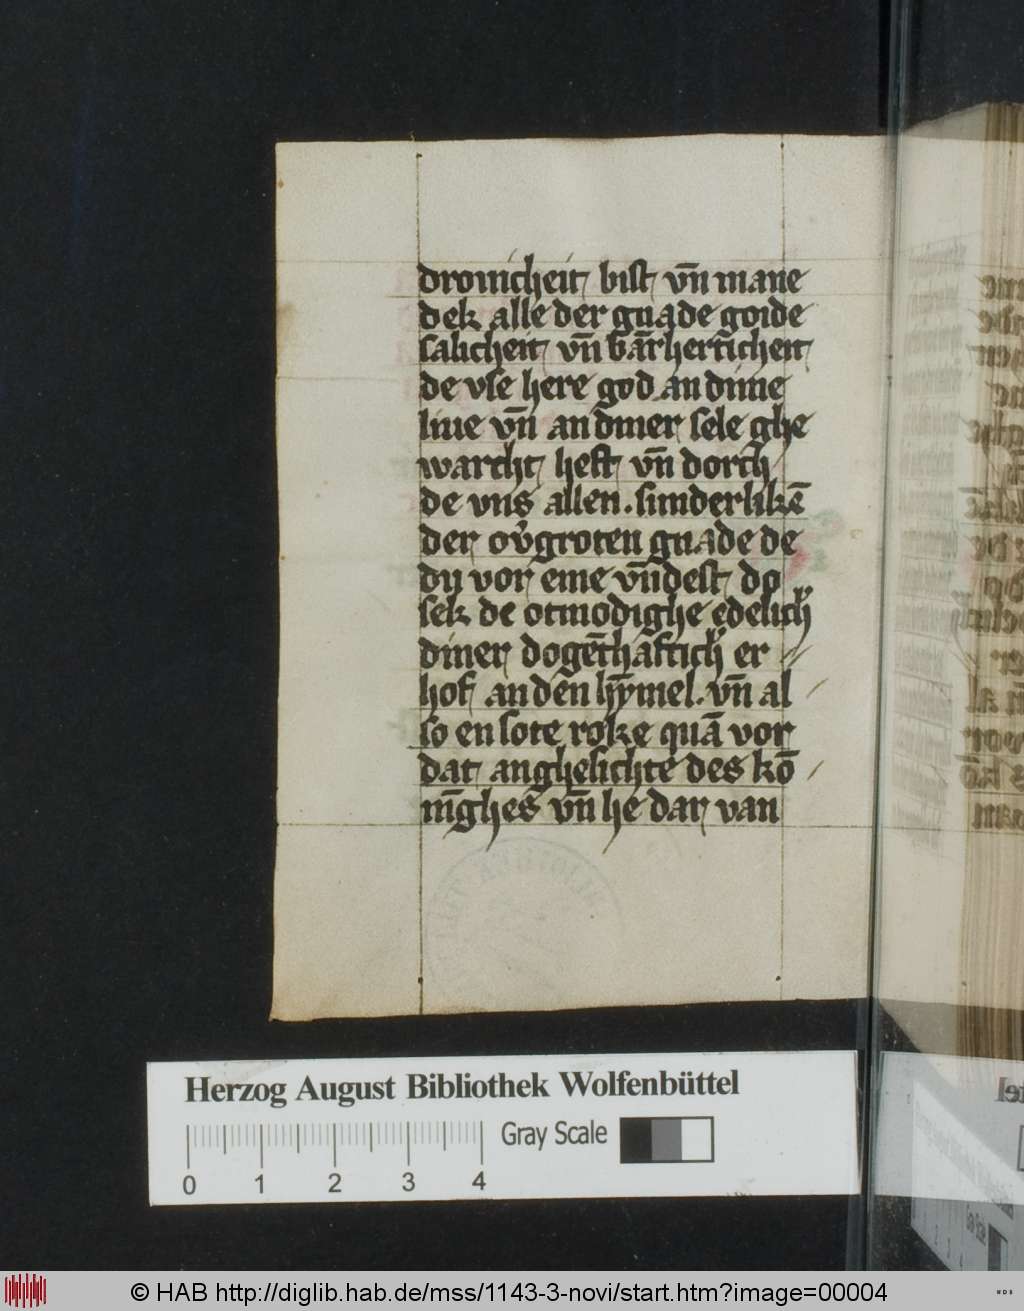 drouicheit bist vn̄ mane
dek alle der gnade goide
salicheit vn̄ barmherticheit
de vse here god an dime
liue vn̄ an diner sele ghe
warcht heft vn̄ dorch
de vns allen. sunderlikē
der ou̾groten gnade de
du vor eme vn̄dest do
sek de otmodighe edelich̾
diner dogēthaftich̾ er
hof an den hȳmel. vn̄ al
so en sote roke quā vor
dat anghesichte des kō
nīghes vn̄ he dar van
Herzog August Bibliothek Wolfenbüttel
Gray Scale
0 1 2 3 4
© HAB http://diglib.hab.de/mss/1143-3-novi/start.htm?image=00004